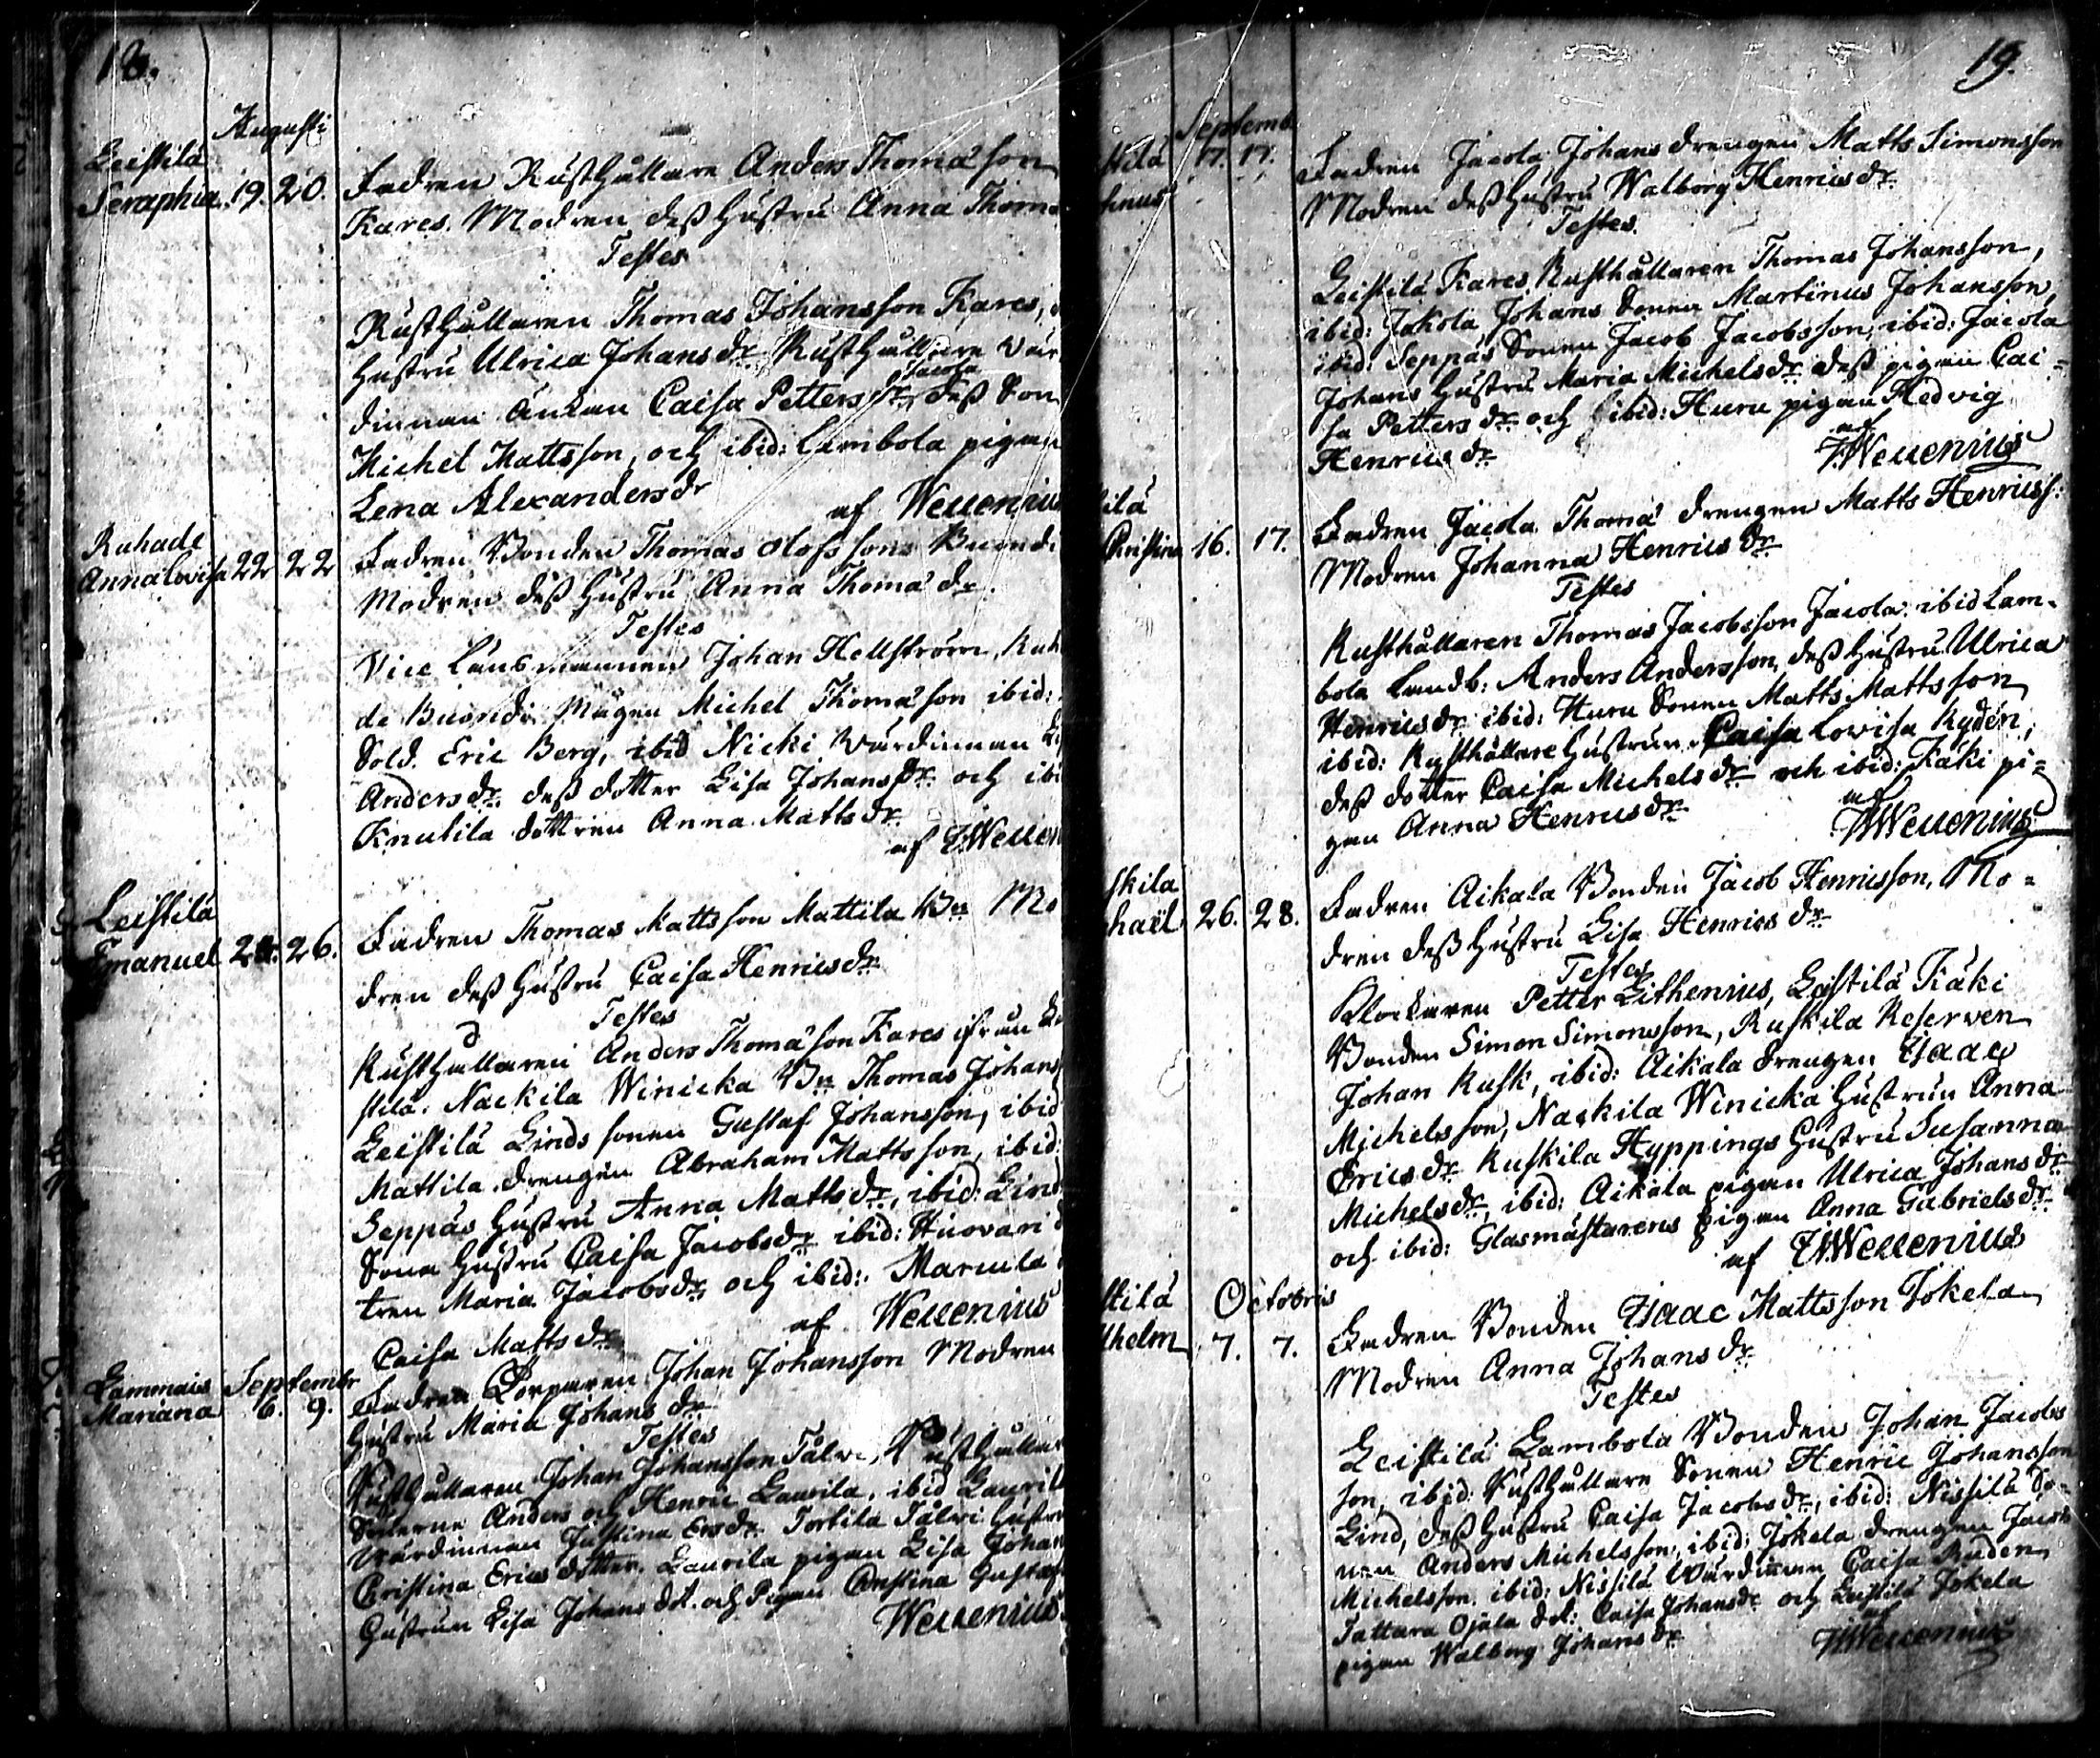 18.
Augusti
Leistilä
Seraphia. 19. 20. Fadren Rusthållare Anders Thomasson
Kares. Modren dess Hustru Anna Thom
Testes
Rusthållaren Thomas Johansson Kares,
Hustru Ulrica Johansdr Rusthållare Vär
dinnan Enkan Caisa Pettersdr, Jacola dess Son
Michel Mattsson, och ibid: Lambola pigan
Lena Alexandersdr
af Wellenius
Ruhade
Anna Lovisa 22 22 Fadren Bonden Thomas Olofssons
Modren dess Hustru Anna Thomasdr.
Testes
Vice Länsmannen Johan Hellström, Ruh
de Mågen Michel Thomasson ibid:
Sold. Eric Berg, ibid Nicki Värdinnan
Andersdr. dess dotter Lisa Johansdr. och ibi
Knutila dottren Anna Mattsdr
af Wellen
Leistilä
Emanuel 26. Fadren Thomas Mattsson Mattila Bn Mo
dren dess Hustru Caisa Henricsdr
Testes
Rusthållaren Anders Thomasson Kares ifrån
stilä. Nackila Winicka Bn Thomas Johans
Leistilä Linds sonen Gustaf Johansson, ibid
Mattila drengen Abraham Mattsson, ibid:
Seppäs Hustru Anna Mattsdr, ibid: Lind
Sons Hustru Caisa Jacobsdr ibid: Huovari
tren Maria Jacobsdr och ibid: Marcula
Caisa Mattsdr
af Wellenius
Lammais Septembr
Mariana 6. 9. Fadren Johan Johansson Modren
Hustru Maria Johansdr
Testes
Rusthållaren Johan Johansson Talvi, Rusthållar
Sönerne Anders och Henric Laurila, ibid Lauril
Värdinnan Justina Ersdr Torttila Talvi Hustru
Christina Erics dotter. Laurila pigan Lisa Johan
Hustrun Lisa Johans dot. och Pigan Christina Gustaf
Wellenius
19.
Septemb
stilä 17. 17. Fadren Jacola Johans drengen Matts Simonsson
hnus Modren dess Hustru Walborg Henricsdr
Testes.
Leistilä Kares Rusthållaren Thomas Johansson,
ibid: Jakola Johans Sonen Martinus Johansson,
ibid: Seppäs Sonen Jacob Jacobsson, ibid: Jacola
Johans Hustru Maria Michelsdr dess pigan Cai-
sa Pettersdr och ibid: Huru pigan Hedvig
Henricsdr
af
Wellenius
ilä
Christina 16. 17. Fadren Jacola Thomas drengen Matts Henricss:
Modren Johanna Henricsdr
Testes
Rusthållaren Thomas Jacobsson Jacola, ibid Lam-
bola Landb: Anders Andersson, dess Hustru Ulrica
Henricsdr ibid: Huru Sonen Matts Mattsson
ibid: Rusthållare Hustrun Caisa Lovisa Rydén,
dess dotter Caisa Michelsdr och ibid: Käki pi-
gan Anna Henricsdr
af
Wellenius
skila
chaël 26. 28. Fadren Aikala Bonden Jacob Henricsson, Mo-
dren dess Hustru Lisa Henricsdr
Testes
Klockaren Petter Lithenius, Leistilä Käki
Bonden Simon Simonsson, Ruskila Reserven
Johan Rusk, ibid: Aikala drengen Isaac
Michelsson, Nackila Winicka Hustrun Anna
Ericsdr Ruskila Hyppings Hustru Susanna
Michelsdr, ibid: Aikala pigan Ulrica Johansdr
och ibid: Glasmästarens pigan Anna Gabrielsdr
af Wellenius
stilä Octobris
lhelm 7. 7. Fadren Bonden Isaac Mattsson Jokela
Modren Anna Johansdr
Testes
Leistilä Lambola Bonden Johan Jacobs
son, ibid: Rusthållare Sonen Henric Johansson
Lind, dess Hustru Caisa Jacobsdr, ibid: Nissilä So-
nen Anders Michelsson, ibid: Jokela drengen Jacob
Michelsson, ibid: Nissilä Värdinnan Caisa Ruden
Tattara Ojala dot: Caisa Johansdr och Leistilä Jokela
pigan Walborg Johansdr
af
Wellenius